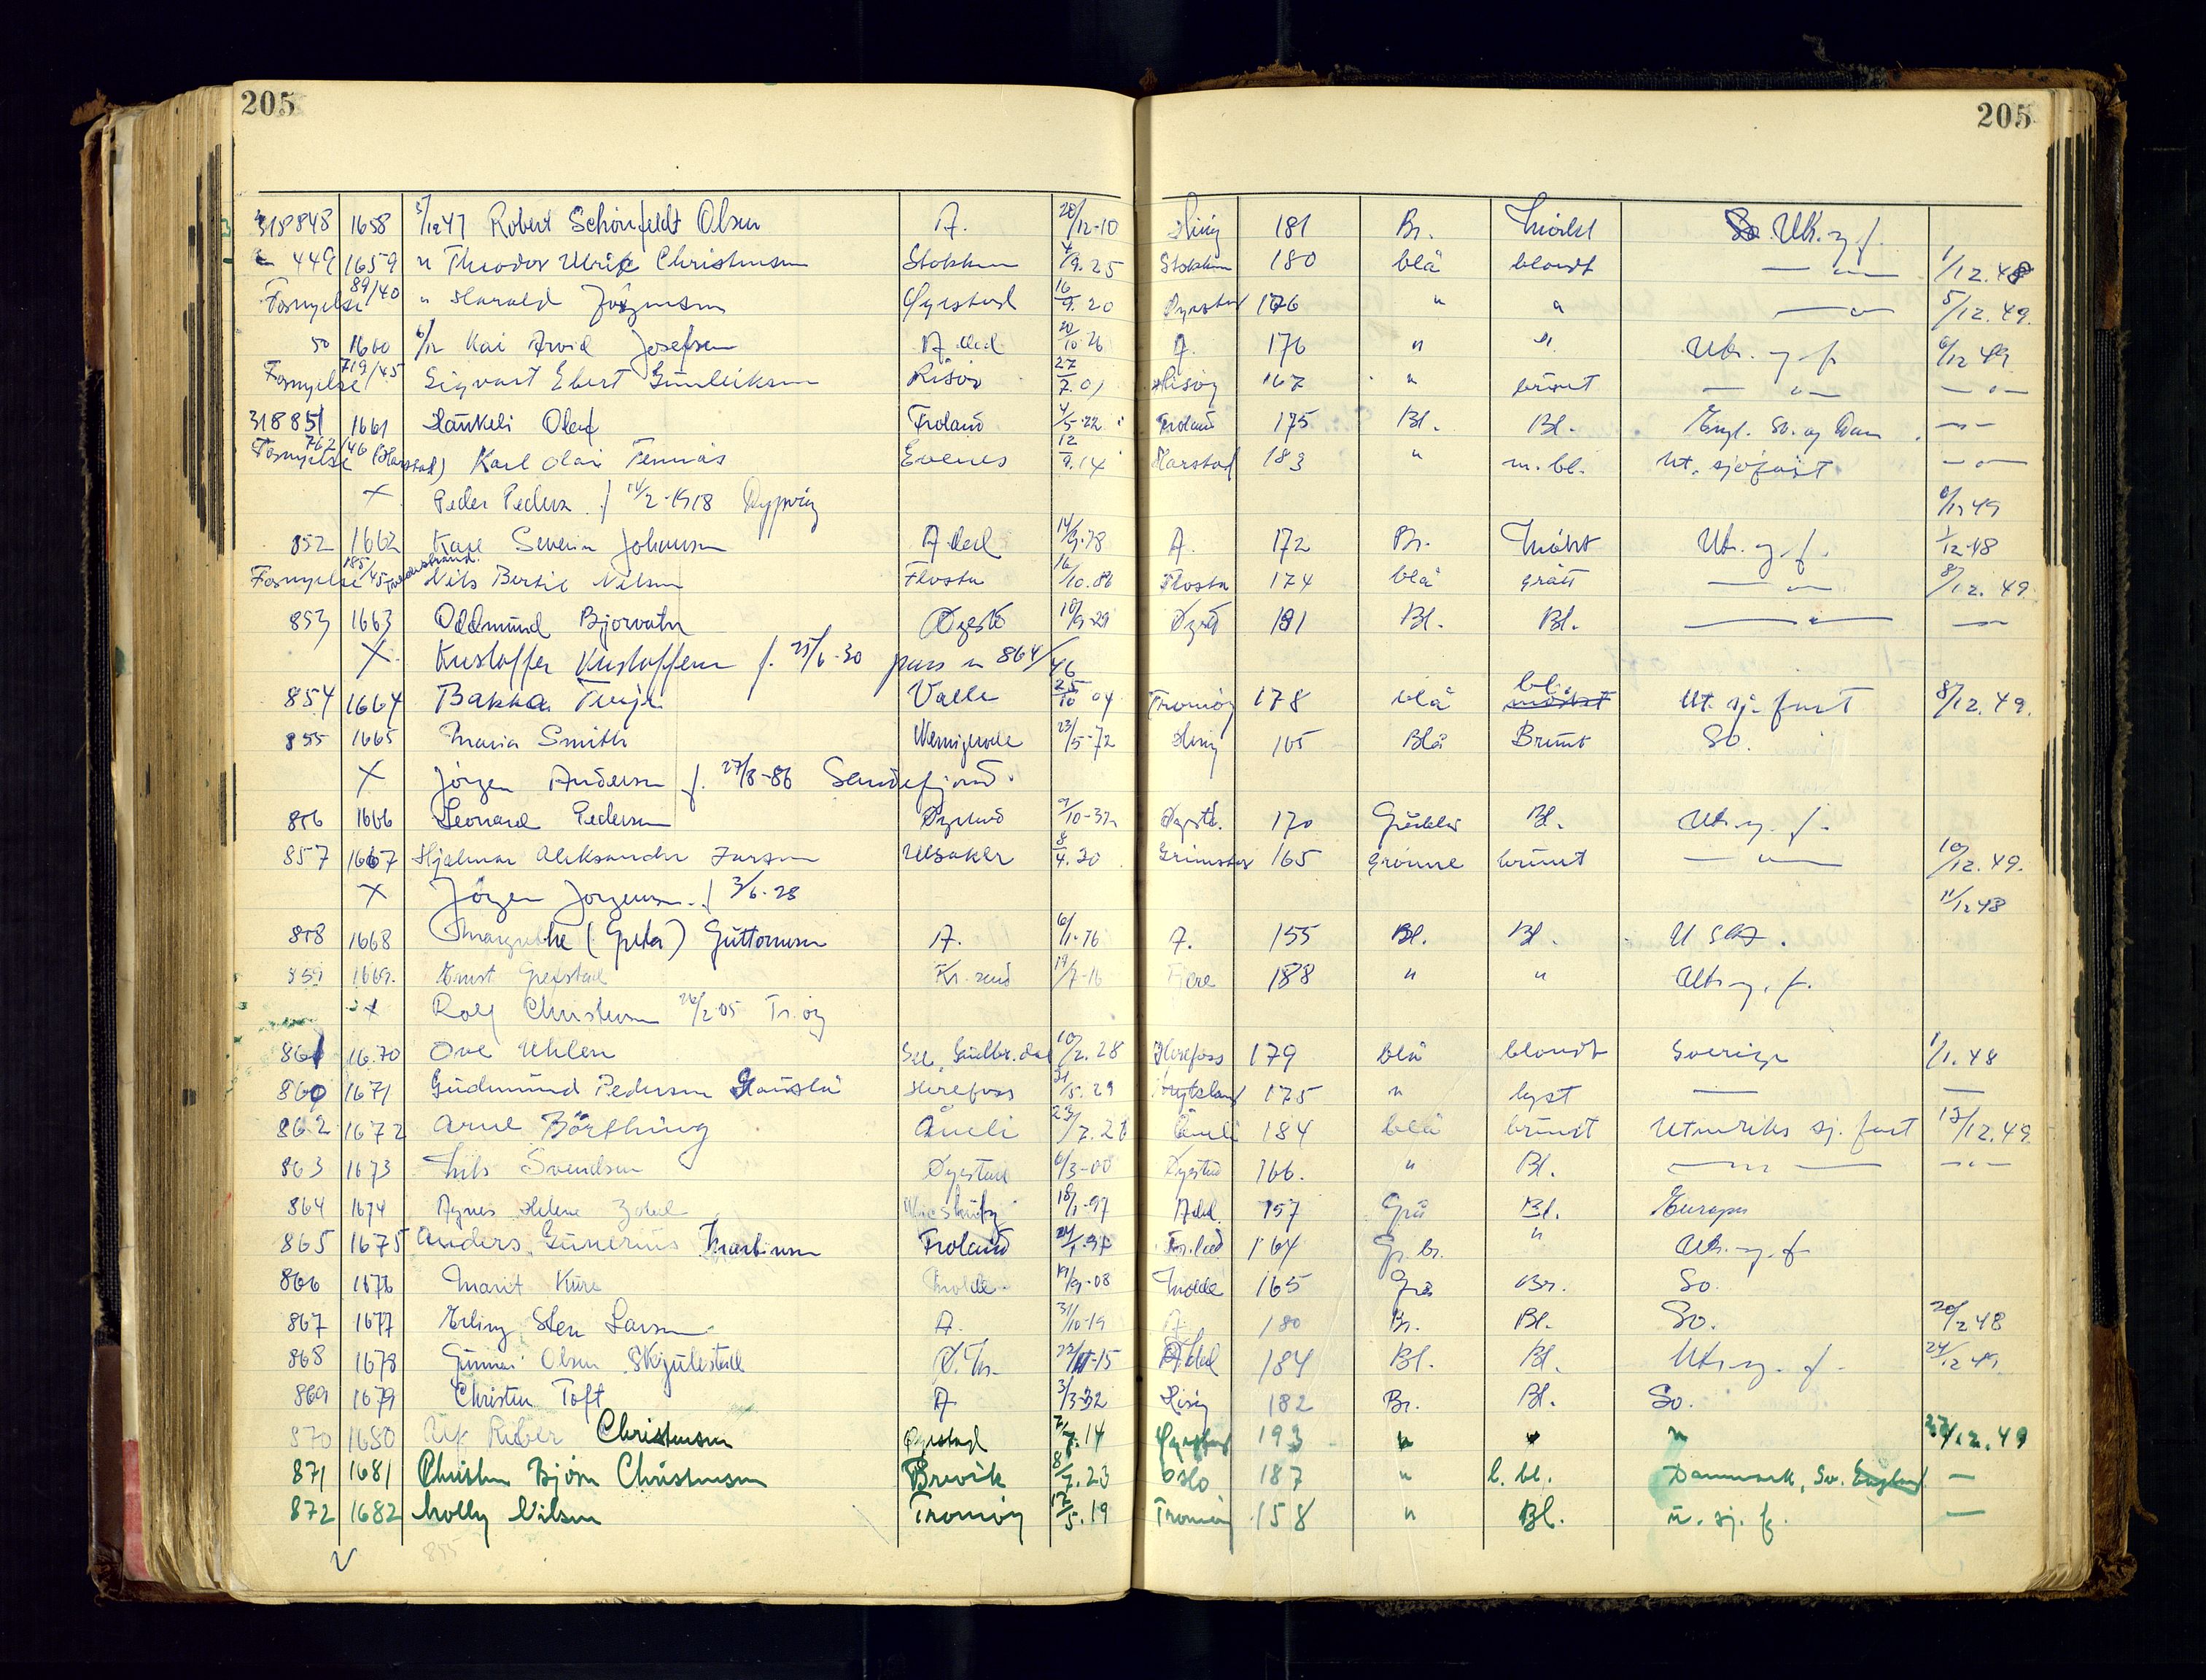 205 205
318848 1658 5/12 47 Robert Schönfeldt Olsen A. 20/12-10 Hisöy 181 Br. Mörkt Utr. og f.
449 1659 " Theodor Ulrik Christensen Stokken 4/9.25 Stokken 180 blå blondt — " — 1/12.48
Fornyelse 89/40 " Harald Jörgensen Øyestad 16/9.20 Øyestad 176 " " — " — 5/12.49.
50 1660 6/12 Kai Arvid Josefsen A.dal 20/10 26 A. 176 " " Utr. og f. 6/12 49
Fornyelse 719/45 Sigvart Ebert Gunleiksen Risör 27/7.01 Hisöy 167 " brunt — " — — " —
318851 1661 Haukeli Olaf Froland 4/5-22 Froland 175 Bl. Bl. Engl. Sv. og Dan. — " —
Fornyelse 762/46 (Harstad) Karl Olai Tennås Evenes 12/9.14 Harstad 183 " m. bl. Ut. sjöfart — " —
x Peder Pedersen f 14/2-1918 Dypvåg 6/12 49
852 1662 Kåre Severin Johansen A.dal A. 172 Br. Mörkt Utr. og f. 1/12-48
Fornyelse 185/45 Nils Bertil Nilsen Flosta 16/10.86 Flosta 174 blå grått — " — 8/12.49.
853 1663 Oddmund Bjorvatn Øyest. 10/9-29 Øyest 181 Bl. Bl. — " — — " —
X. Kristoffer Kristoffersen f. 25/6-30 pass n 864/46
854 1664 Bakka Terje Valle 25/10 04 Tromöy 178 blå bl. mörkt Ut. sj. fart 8/12.49.
855 1665 Maria Smith Wernigerode 23/5-72 Hisöy 165 Blå Brunt Sv.
X Jörgen Andersen f. 27/8-86 Sandefjord.
856 1666 Leonard Pedersen Øyestad 9/10-32 Øyestd. 170 Bl. Utr. og. f.
857 1667 Hjalmar Aleksander Larsen Ullsaker 8/4.20 Grimstad 165 grønne brunt — " — 10/12.49.
x Jörgen Jorgensen. f 3/6.28 11/12 48
858 1668 Margrethe (Greta) Guttormsen A. 6/1-76 A. 155 Bl. Bl. USA.
859 1669. Ernst Grefstad Kr. sand 19/7-16 Fjere 188 " " Utr og. f.
x Rolf Christensen 26/2-05 Tr. öy
861 1670 Ove Uhlen Sel, Gudbr. dal 10/2.28 Herefoss 179 blå blondt Sverige 1/1.48
860 1671 Gudmund Pedersen Herefoss 31/5.29 175 " lyst — —
862 1672 Arne Börthing Åmli 23/7.21 Åmli 184 blå brunt Utenriks sj. fart 13/12.49.
863 1673 Nils Svendsen Øyestad 6/3-00 Øyestad 166. " Bl. — " — — " —
864 1674 Agnes Helene 18/1-97 A.dal. 157 Grå Bl. Europa
865 1675 Anders Gunerius Martinsen Froland 24/1.97 Fr.land 164 Gr. br. " Utr. og. f.
866 1676 Marit Molde 19/9-08 Molde 165 Grå Br. Sv.
867 1677 Erling Sten Larsen A. 31/10-19 A. 180 Br. Bl. Sv. 20/2 48
868 1678 Gunnar Olsen Skjulestad 22/11-15 A.dal 184 Bl. Bl. Utr og. f. 24/12 49.
869 1679 Christen Toft A. 3/3-32 Hisöy 182 Br. Bl. Sv.
870 1680 Alf Riber Christensen Øyestad 14 Øyestad 193 " " " 27/12.49
871 1681 Christen Björn Christensen Brevik 8/7.23 Oslo 187 " l. bl. Danmark, Sv. England —
872 1682 Molly Nilsen Tromöy 17/5.19 Tromöy 158 " Bl. u. sj. f. —
855